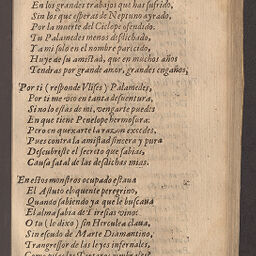 En los grandes trabajos que has sufrido,
Sin los que esperas de Neptuno ayrado,
Por la muerte del Ciclope ofendido.
Tu Palamedes menos desdichado,
Y a mi solo en el nombre parecido,
Huye de su amistad, que en muchos años
Tendras por grande amor, grandes engaños,
Por ti (responde Vlises) Palamedes,
Por ti me veo en tanta desuentura,
Si no lo estàs de mi, vengarte puedes
En que tiene Penelope hermosura:
Pero en quexarte la razon excedes,
Pues contra la amistad sincera y pura
Descubriste el secreto que sabias,
Causa fatal de las desdichas mias.
En estos monstros ocupado estaua
El Astuto eloquente peregrino,
Quando sabiendo ya que le buscaua
El alma sabia de Tiresias vino:
O tu (le dixo) sin Herculea claua,
Sin escudo de Marte Diamantino,
Transgressor de las leyes infernales,